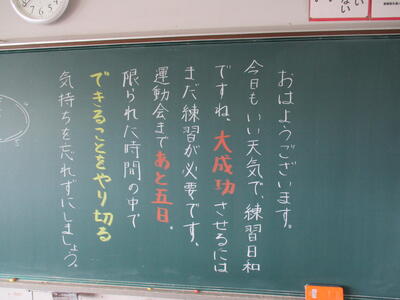 おはようございます。
今日もいい天気で、練習日和
ですね。大成功させるには
まだ練習が必要です。
運動会まであと五日。
限られた時間の中で
できることをやり切る
気持ちを忘れずにしましょう。